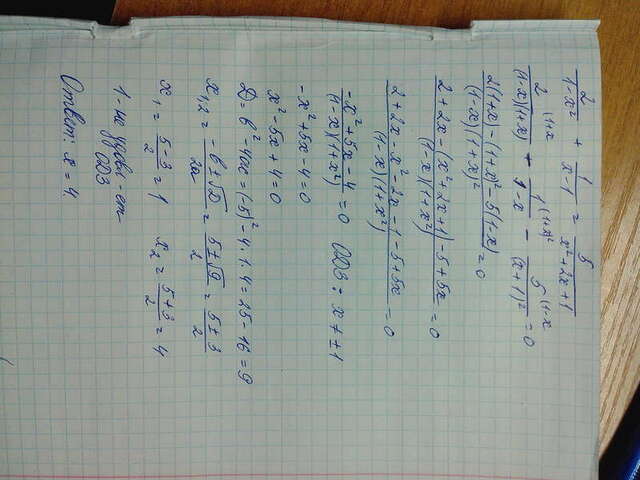 2/(1-x²) + 1/(x-1) = 5/(x²+2x+1)
2 (1+x/((1-x)(1+x)) + 1 (1+x)²/(1-x) - 5 (1-x/((x+1)²) = 0
(2(1+x)-(1+x)²-5(1-x))/((1-x)(1+x)²) = 0
(2+2x-(x²+2x+1)-5+5x)/((1-x)(1+x²)) = 0
(2+2x-x²-2x-1-5+5x)/((1-x)(1+x²)) = 0
(-x²+5x-4)/((1-x)(1+x²)) = 0 ОДЗ: x≠±1
-x²+5x-4=0
x²-5x+4=0
D=b²-4ac=(-5)²-4·1·4=25-16=9
x₁,₂ = (-b±√D)/2a = (5±√9)/2 = (5±3)/2
x₁ = (5-3)/2 = 1 x₂ = (5+3)/2 = 4
1-не удовл-ет
ОДЗ
Ответ: x=4.